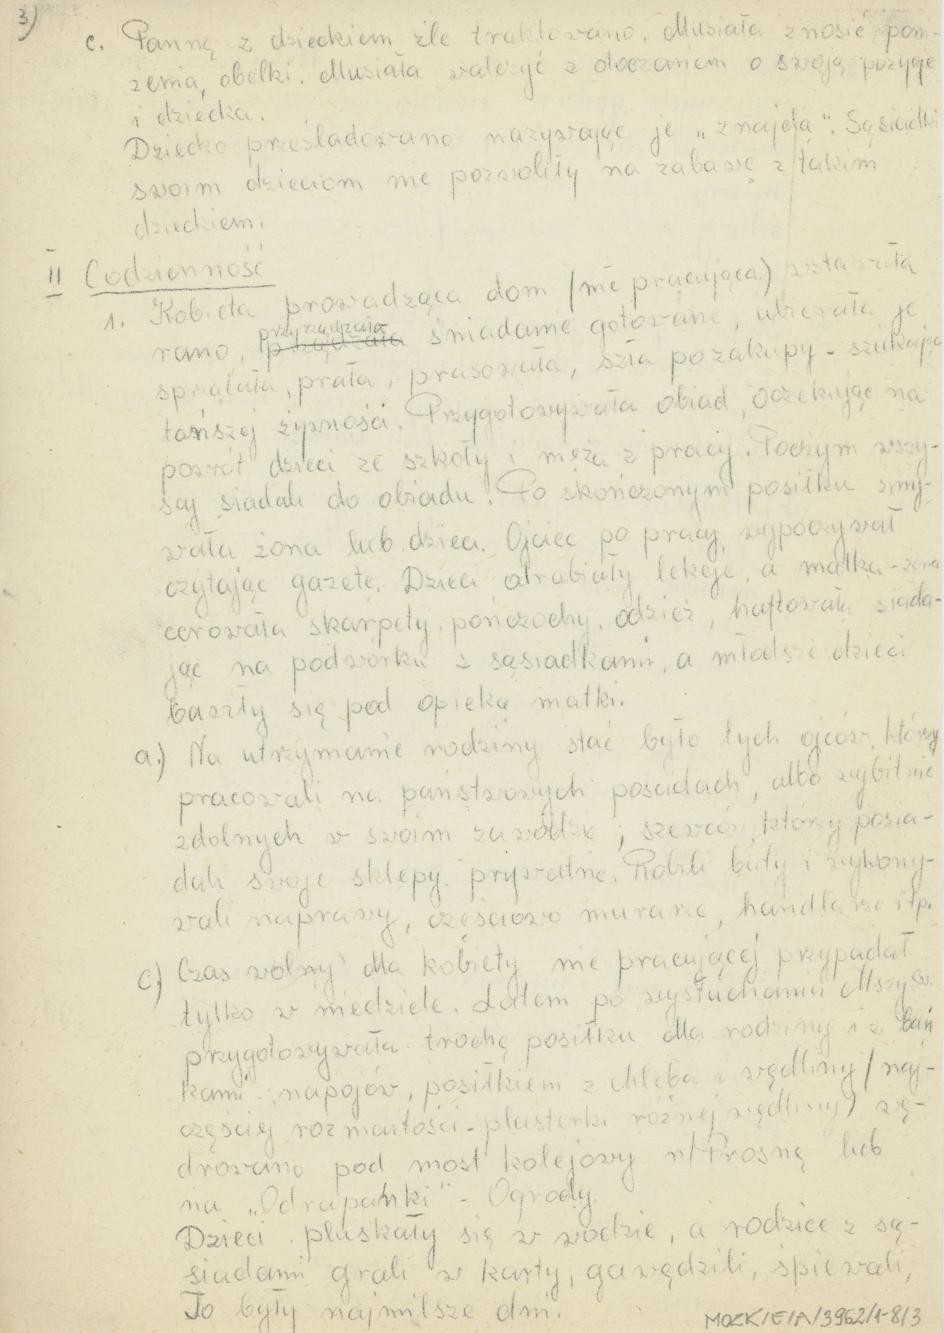 3)
c. Pannę z dzieckiem źle traktowano. Musiała znosić poni-
żenia, obelki. Musiała walczyć z otoczeniem o swoją pozycję
i dziecka.
Dziecko prześladowano nazywając je "znajda". Sąsiadki
swoim dzieciom nie pozwoliły na zabawę z takim
dzieckiem.
II Codzienność
1. Kobieta prowadząca dom /nie pracująca) wstawała
rano, przyrządzała śniadanie gotowane, ubierała je
sprzątała, prała, prasowała, szła po zakupy - szukając
tańszej żywności. Przygotowywała obiad, oczekując na
powrót dzieci ze szkoły i męża z pracy. Poczym wszy-
scy siadali do obiadu. Po skończonym posiłku zmy-
wała żona lub dzieci. Ojciec po pracy, wypoczywał
czytając gazetę. Dzieci odrabiały lekcje, a matka-żona
cerowała skarpety, pończochy, odzież, haftowała siada-
jąc na podwórku z sąsiadkami, a młodsze dzieci
bawiły się pod opieką matki.
a.) Na utrzymanie rodziny stać było tych ojców, którzy
pracowali na państwowych posadach, albo wybitnie
zdolnych w swoim zawodzie, szewców, którzy posia-
dali swoje sklepy prywatne. Robili buty i wykony-
wali naprawy, częściowo murarze, handlarze itp.
c) Czas wolny dla kobiety nie pracującej przypadał
tylko w niedziele. Latem po wysłuchaniu Mszy św.
przygotowywała trochę posiłku dla rodziny i z bań
kami napojów, posiłkiem z chleba i wędliny /naj-
częściej rozmaitości - plasterki różnej wędliny) wę-
drowano pod most kolejowy n/Prosną lub
na "Odrapańki" - Ogrody.
Dzieci pluskały się w wodzie, a rodzice z są-
siadami grali w karty, gawędzili, śpiewali,
To były najmilsze dni.
MOZK/E/A/3962/1-8/3